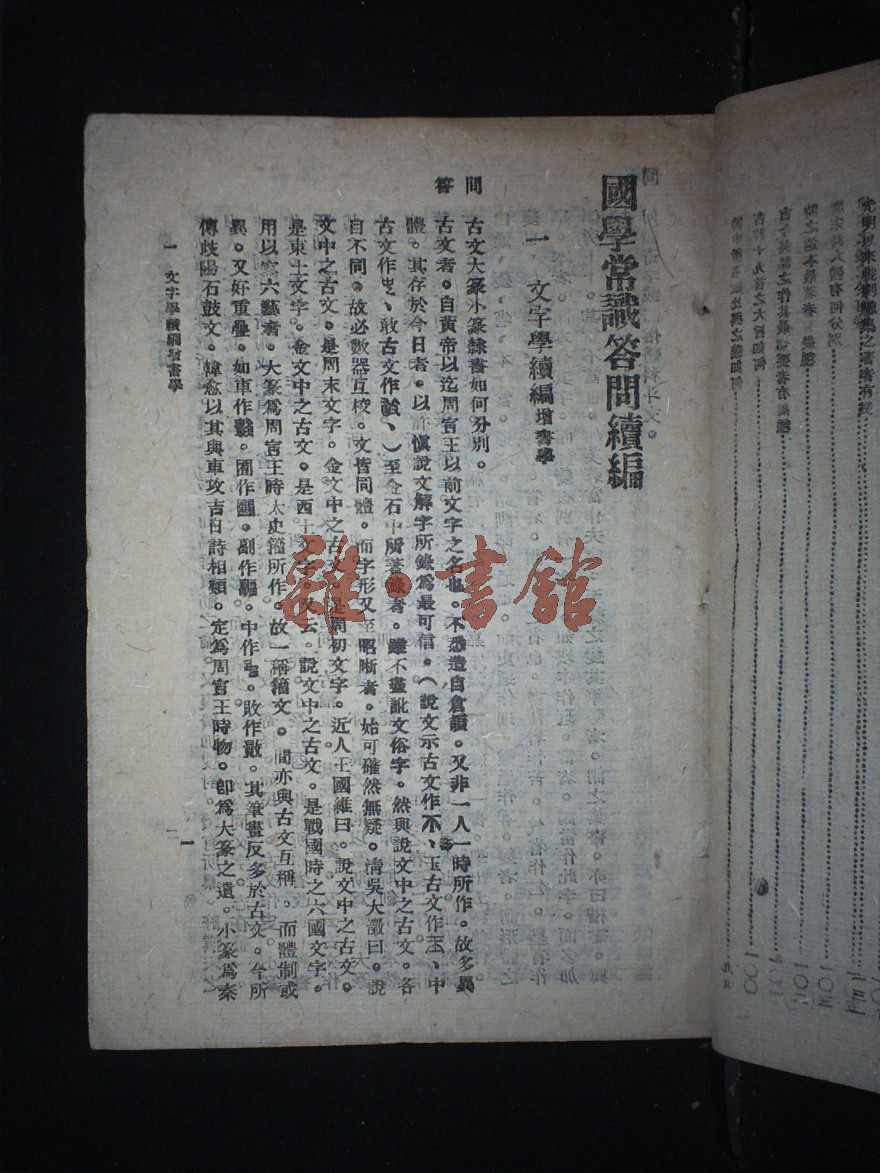 國學常識答問續編
一 文字學續編增書學
問 古文大篆小篆隸書如何分別。
答 古文者。自黃帝以迄周宣王以前文字之名也。不悉造自倉頡。又非一人一時所作。故多異
體。其存於今日者。以許愼說文解字所錄爲最可信。(說文示古文作、玉古文作、中
古文作、敢古文作、)至金石中所著錄者。雖不盡訛文俗字。然與說文中之古文。各
自不同。故必數器互校。文皆同體。而字形又至昭晰者。始可確然無疑。淸吳大澂曰。說
文中之古文。是周末文字。金文中之古文。是周初文字。近人王國維曰。說文中之古文。
是東土文字。金文中之古文。是西土文字。又云。說文中之古文。是戰國時之六國文字。
用以寫六藝者。大篆爲周宣王時太史籀所作。故一稱籀文。間亦與古文互稱。而體制或
異。又好重疊。如車作、囿作、副作、中作、敗作。其筆畫反多於古文。今所
傳歧陽石鼓文。韓愈以其與車攻吉日詩相類。定爲周宣王時物。卽爲大篆之遺。小篆爲秦
一 文字學續編增書學
一
雜·書館
元明以來戲劇
唐宋詩人體有何分別
吉詩十九首之大旨如何
一〇〇